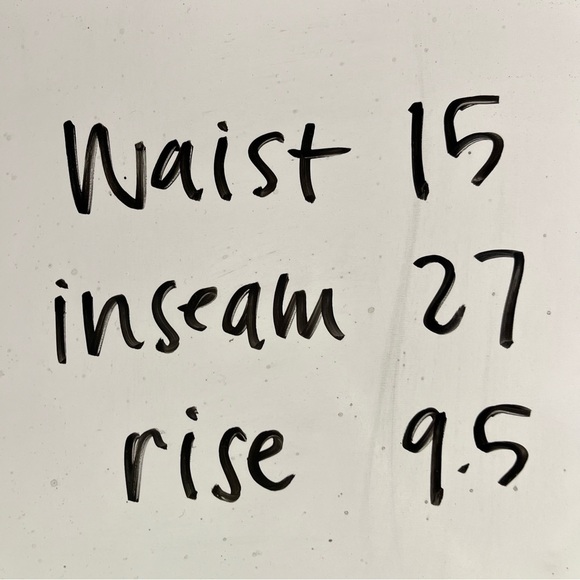 Waist 15
inseam 27
rise 9.5